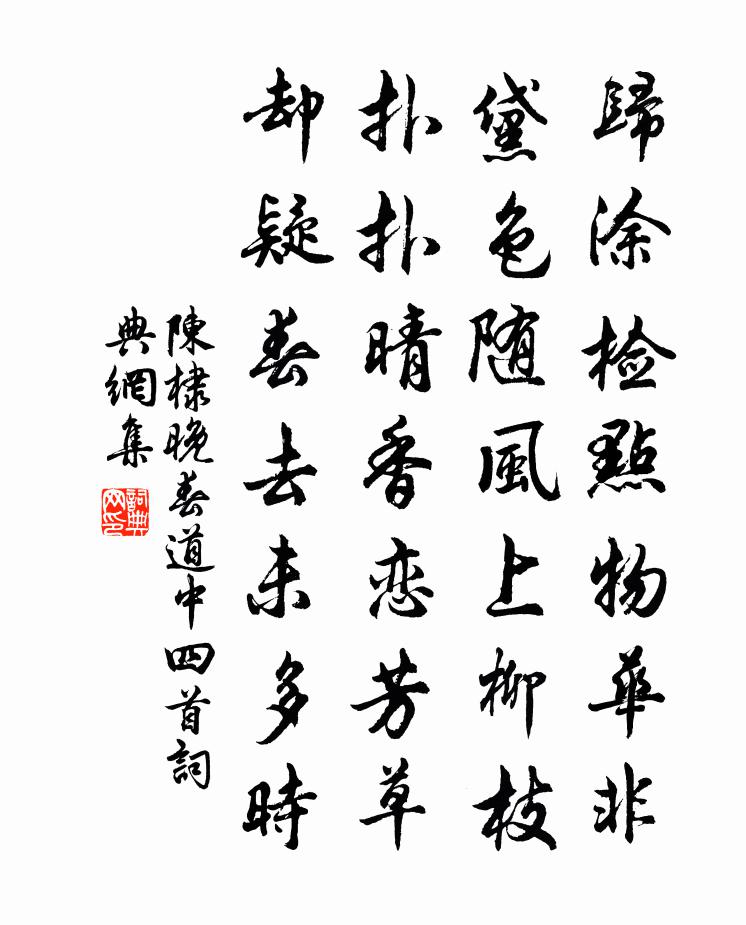 歸涂檢點物華非
黛色随風上柳枝
扑扑晴香恋芳草
却疑春去未多時
陳棣晚春道中四首詞
典網集
詞典
网印